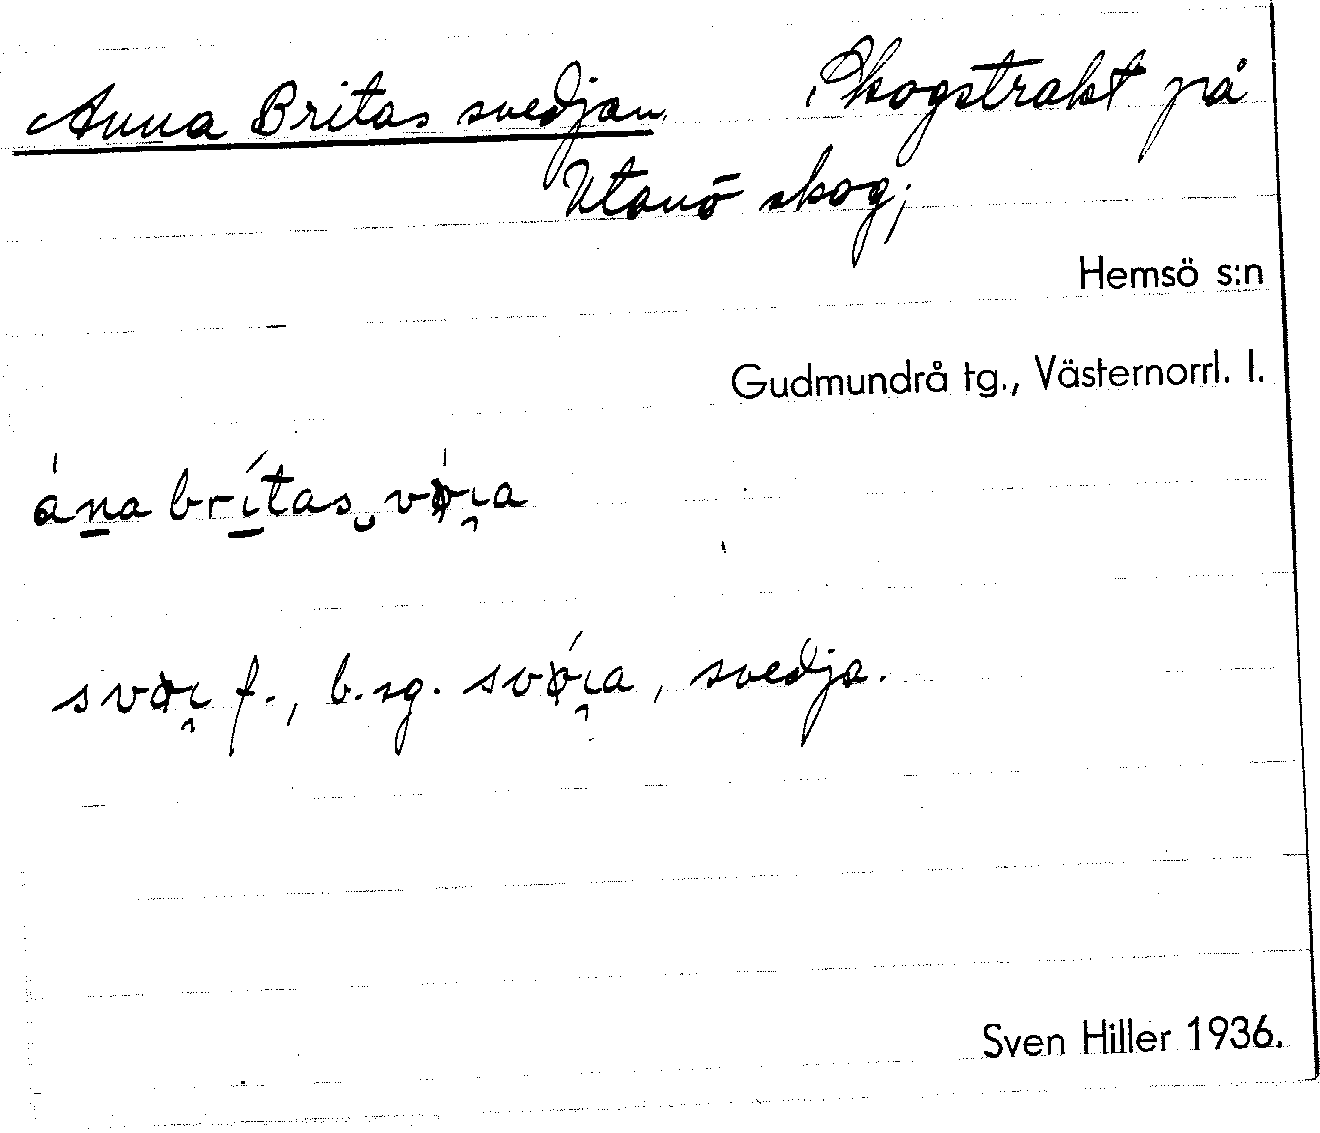 Anna Britas svedjan. Skogstrakt på
Utanö skog;
Hemsö s:n
Gudmundrå tg., Västernorrl. l.
ána brítas‿vøı̯a
svøı̯ f., b.sg. svǿı̯a, svedja.
Sven Hiller 1936.